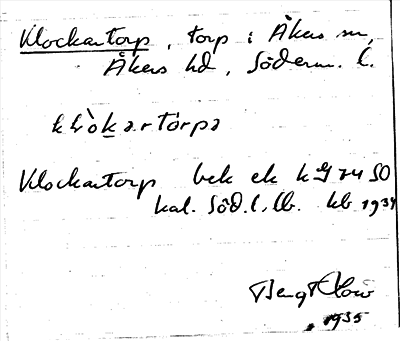 Klockartorp, torp i Åkers sn,
Åkers hd, Söderm. l.
Klockartorp bek ek 74 SO
kal. Söd. l. lb. kb 1934
Bengt
1935